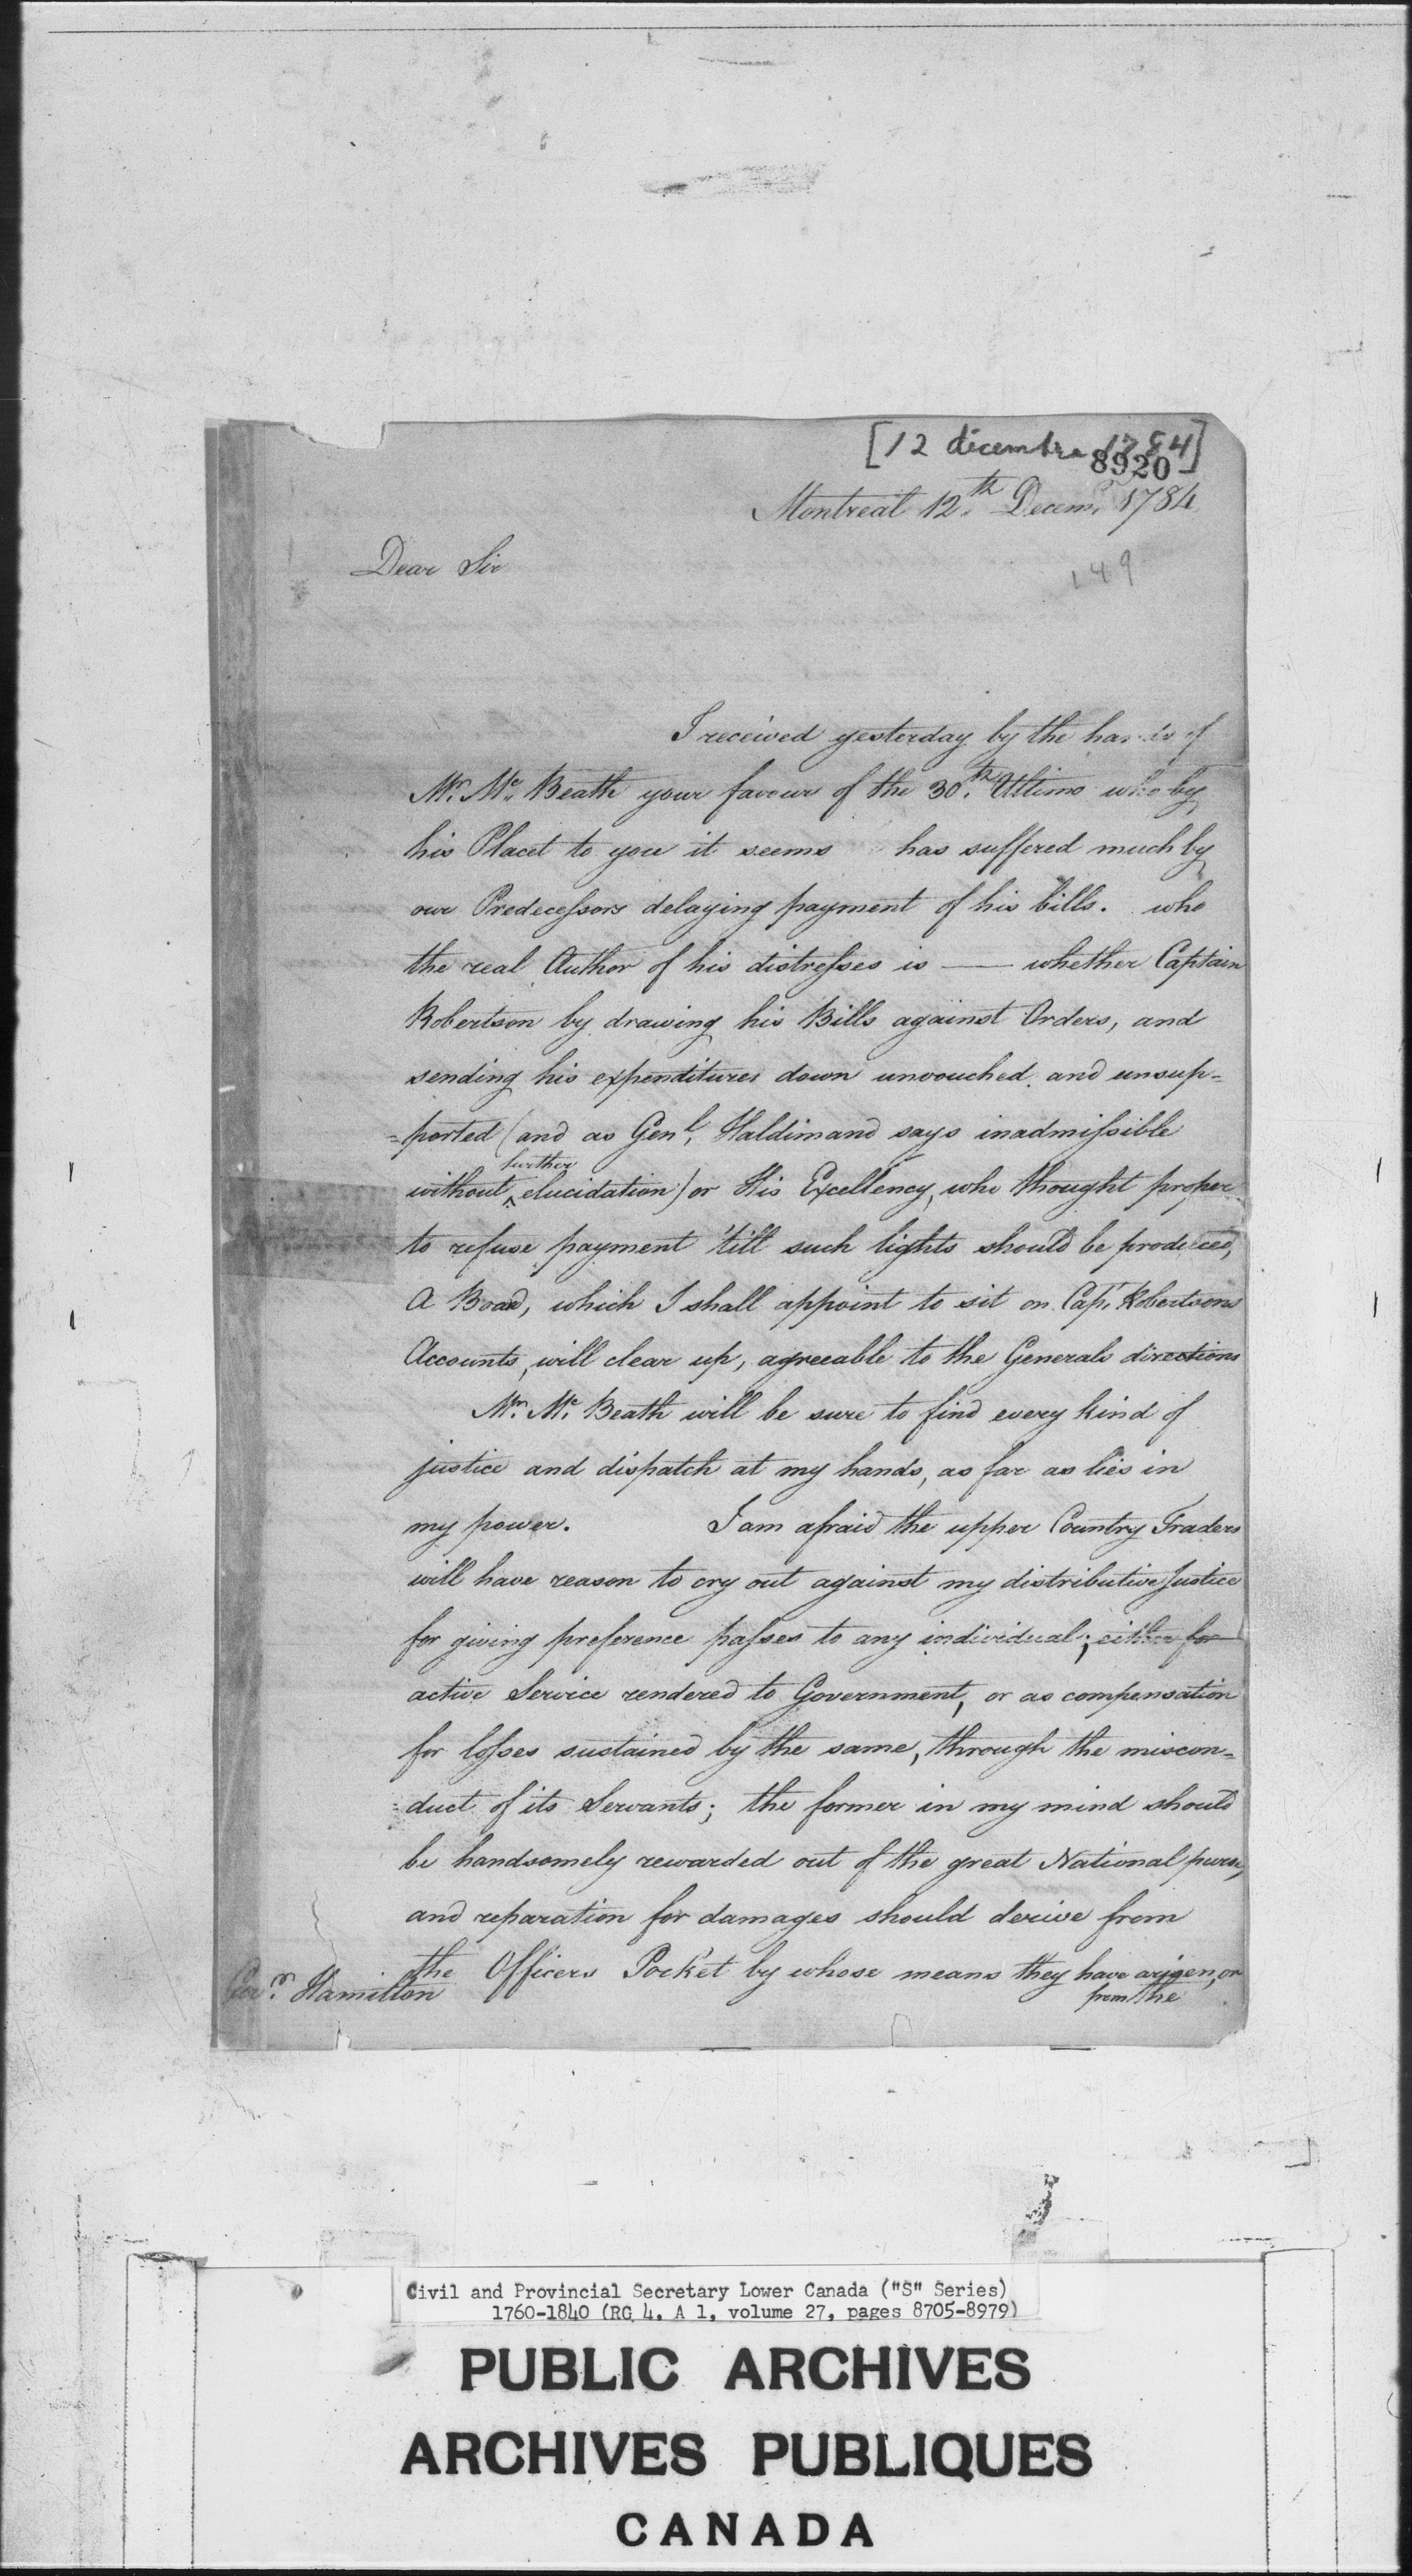 [12 décembre 1784]
8920
Montreal 12th. Decemr. 1784
149
Dear Sir
I received yesterday by the hands of
Mr. Mc. Beath your favour of the 30th. Ultimo who by
his Placet to you it seems has suffered much by
our Predecessors delaying payment of his bills. who
the real Author of his distresses is — whether Captain
Robertson by drawing his Bills against Orders, and
sending his expenditures down unvouched and unsup=
=ported (and as Genl. Haldimand says inadmissible
further
without ^ elucidation) or His Excellency, who thought proper
to refuse payment 'till such lights should be produced,
A Board, which I shall appoint to sit on Capt. Robertsons
Accounts, will clear up, agreeable to the Generals directions
Mr. Mc. Beath will be sure to find every kind of
justice and dispatch at my hands, as far as lies in
my power. I am afraid the upper Country Traders
will have reason to cry out against my distributive Justice
for giving preference passes to any individual; either for
active Service rendered to Government, or as compensation
for losses sustained by the same, through the miscon=
=duct of its Servants; the former in my mind should
be handsomely rewarded out of the great National purse,
and reparation for damages should derive from
the Officers Pocket by whose means they have arisen, or
from the
Govr. Hamilton
Civil and Provincial Secretary Lower Canada ("S" Series)
1760-1840 (RG 4, A 1, volume 27, pages 8705-8979)
PUBLIC ARCHIVES
ARCHIVES PUBLIQUES
CANADA